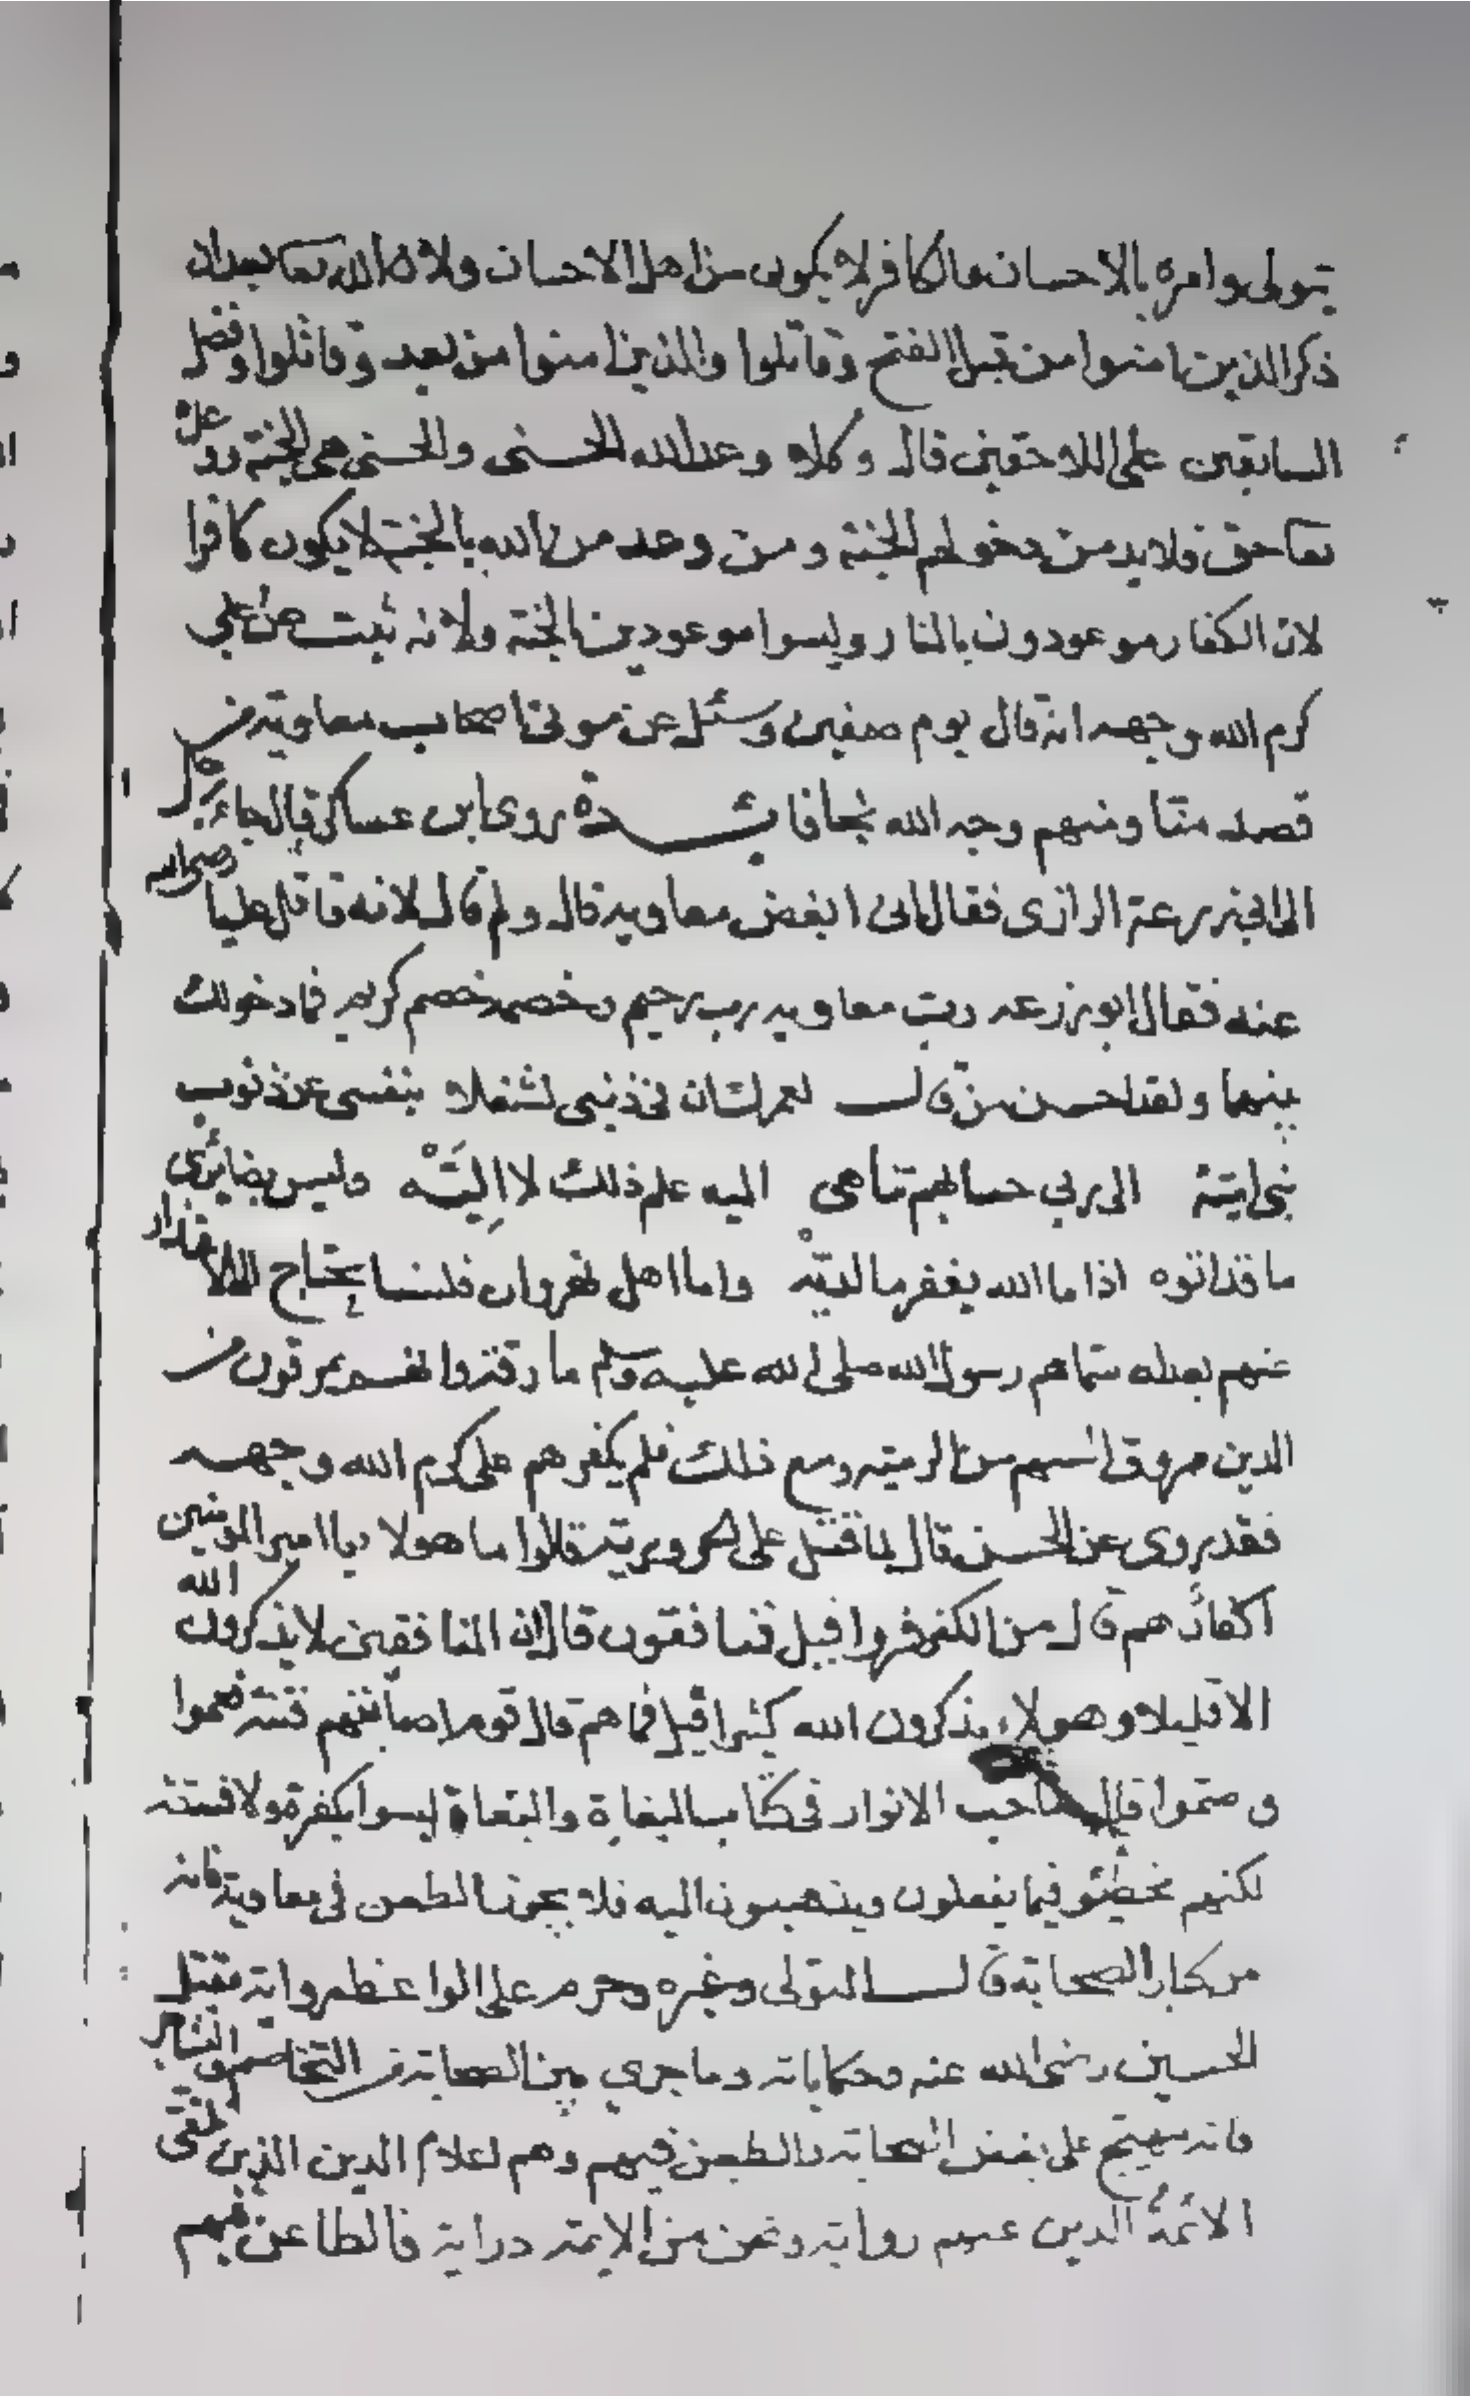 يتولى وامره بالاحسان والكافر لا يكون من اهل الاحسان ولان الله تعا بعد ان
ذكر الذين امنوا من قبل الفتح وقاتلوا والذين امنوا من بعد وقاتلوا وفضل
السابقين على اللاحقين قال وكلا وعد الله الحسنى والحسنى هي الجنة ووعده
تعا حق فلا بد من دخولهم الجنة ومن وعد من الله بالجنة لا يكون كافرا
لان الكفار موعودون بالنار وليسوا موعودين الجنة ولانه ثبت عن علي
كرم الله وجهه انه قال يوم صفين وسئل عن موتى اصحاب معاوية من
قصد منا ومنهم وجه الله نجا فائدة روى ابن عساكر قال جاء رجل
الى ابي زرعة الرازي فقال اني ابغض معاوية قال ولم قال لانه قاتل عليا رضي الله
عنه فقال ابو زرعه رب معاويه رب رحيم وخصمه خصم كريم فما دخولك
بينهما ولقد احسن من قال لعمرك ان في ذنبي لشغلا بنفسي عن ذنوب
بني امية الى ربي حسابهم تناهى اليه علم ذلك لا اليه وليس بضائري
ما قد اتوه اذا ما الله يغفر ما لديه واما اهل نهروان فلسنا نحتاج الاعتذار
عنهم بعد سماهم رسول الله صلى الله عليه وسلم مارقة وانهم يمرقون من
الدين مروق السهم من الرمية ومع ذلك فلم يكفرهم على كرم الله وجهه
فقد روى عن الحسن قال لما قتل علي الحرورية قالوا ما هولاء يا امير المومنين
اكفار هم قال من الكفر فروا قيل فمنافقون قال ان المنافقين لا يذكرون الله
الا قليلا وهولاء يذكرون الله كثيرا قيل فما هم قال قوم اصابتهم فتنة فعموا
وصموا قال صاحب الانوار في كتاب البغاة والبغاة ليسوا بكفرة ولا فسقة
لكنهم مخطئو فيما يفعلون ويذهبون اليه فلا يجوز الطعن في معاوية فانه
من كبار الصحابة قال المتولى وغيره وحرم على الواعظ رواية مقتل
الحسين رضى الله عنه وحكاياته وما جرى بين الصحابة من التخاصم والتشاجر
فانه مهيج على بغض الصحابة والطعن فيهم وهم اعلام الدين الذين تلقى
الائمة الدين عنهم رواية ونحن من الايمة دراية فالطاعن فيهم